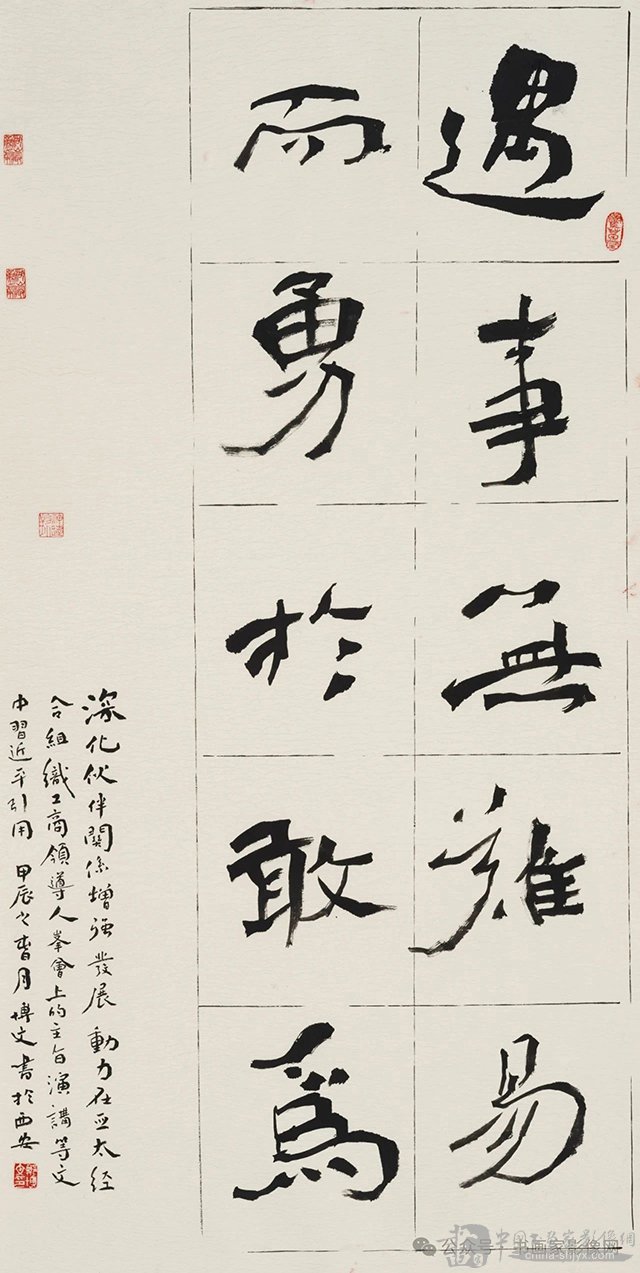 遇事無難易
而勇於敢為
深化伙伴關係增强發展動力在亚太经
合組織工商領導人峯會上的主旨演講等文
中習近平引用 甲辰之春月博文書於西安
公众号·书画家影像网
中国书画家影像網
www.china-shjyx.com